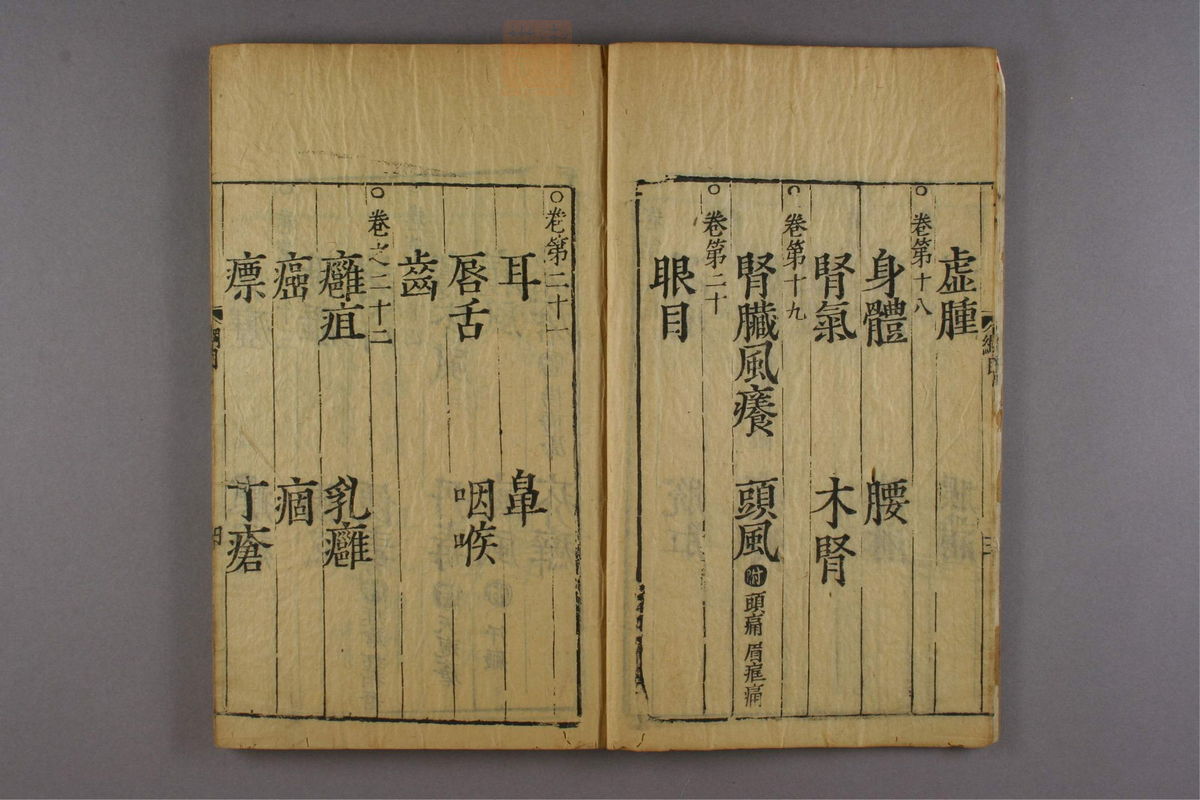 虛腫
○卷第十八
身體　腰
腎氣　木腎
○卷第十九
腎臟風癢　頭風附頭痛眉眶痛
○卷第二十
眼目
○卷第二十一
耳　鼻
唇舌　咽喉
齒
○卷之二十二
癰疽　乳癰
癌　痼
瘭　丁瘡
綱目　四